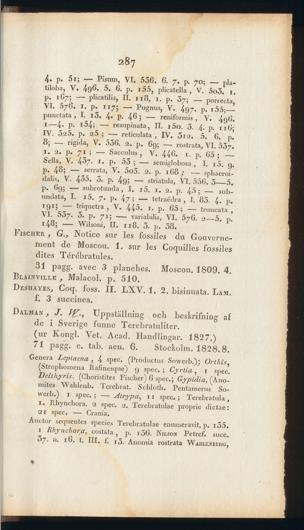 287
4. p. 51; — Pisum, VI. 536. 6. 7. p. 70; — pla-
tiloba, V. 496. 5. 6. p. 155, plicatella, V. 503. 1.
p. 167; — plicatilis, II. 118, 1. p. 37; — porrecta,
VI. 576. 1. p. 117; — Pugnus, V. 497. p. 155; —
punctata, I. 15. 4. p. 46; — reniformis, V. 496.
1—4. p. 154; — resupinata, II. 150. 3. 4. p. 116;
IV. 325. p. 25; — reticulata, IV. 312. 5. 6. p.
8; — rigida, V. 536. 2. p. 69; — rostrata, VI. 537.
1. 2. p. 71; — Sacculus, V. 446. 1. p. 65; —
Sella, V. 437. 1. p. 53; — semiglobosa, I. 15. 9.
p. 48; — serrata, V. 503. 2. p. 168; — sphaeroi-
dalis, V. 435. 3. p. 49; — striatula, VI. 536. 3—5.
p. 69; — subrotunda, I. 15. 1. 2. p. 45; — sub-
undata, I. 15. 7. p. 47; — tetraëdra, I. 83. 4. p.
191; — triquetra, V. 445. 1. p. 65; — truncata,
VI. 537. 3. p. 71; — variabilis, VI. 576. 2—5. p.
148; — Wilsoni, II. 118. 3. p. 38.
FISCHER, G., Notice sur les fossiles du Gouverne-
ment de Moscou. 1. sur les Coquilles fossiles
dites Térébratules.
31 pagg. avec 3 planches. Moscou. 1809. 4.
BLAINVILLE, Malacol. p. 510.
DESHAYES, Coq. foss. II. LXV. 1. 2. bisinuata. LAM.
f. 3 succinea.
DALMAN, J. W., Uppställning och beskrifning af
de i Sverige funne Terebratuliter.
(ur Kongl. Vet. Acad. Handlingar. 1827.)
71 pagg. c. tab. aen. 6. Stockholm. 1828. 8.
Genera Leptaena, 4 spec. (Productus Sowerb.); Orthis,
(Strophomena Rafinesque) 9 spec.; Cyrtia, 1 spec.
Delthyris. (Choristites Fischer) 6 spec.; Gypidia, (Ano-
mites Wahlenb. Terebrat. Schloth. Pentamerus So-
werb.) 1 spec.; — Atrypa, 11 spec.; Terebratula,
1. Rhynchora. 2 spec. 2. Terebratulae proprie dictae:
21 spec. — Crania.
Auctor sequentes species Terebratulae enumeravit, p. 135.
1 Rhynchora, costata, p. 136. NILSON Petref. succ.
37. n. 16. t. III. f. 13. Anomia rostrata WAHLENBERG,